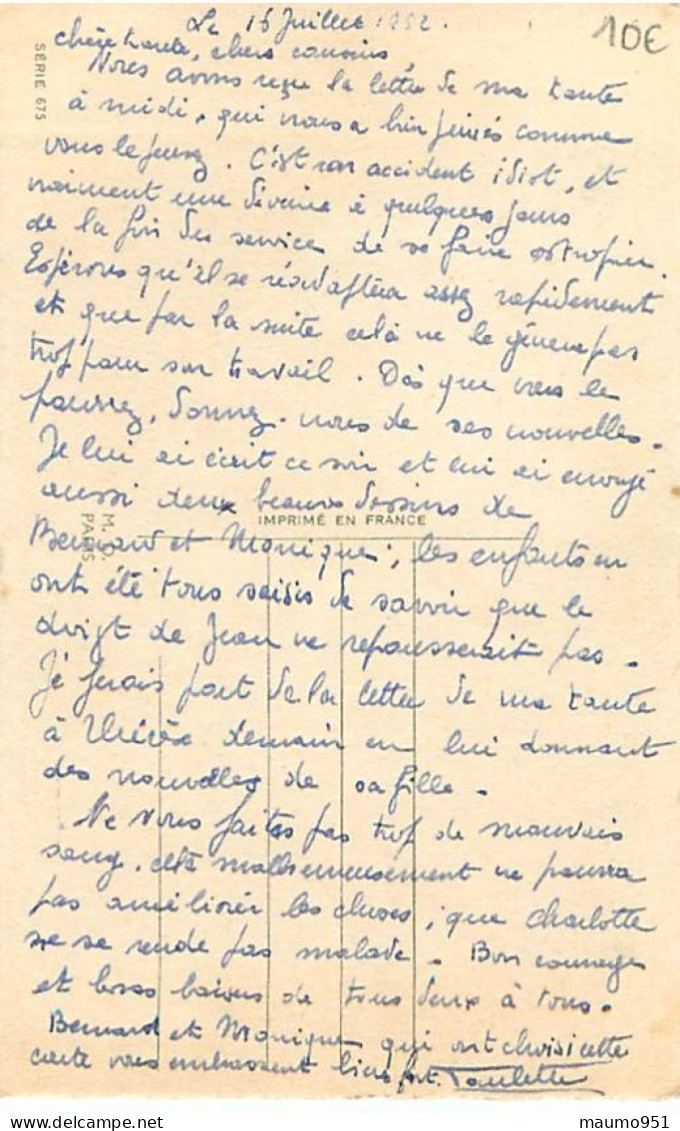 Le 16 Juillet 1952.
10€
Chère tante, chers cousins
Nous avons reçu la lettre de ma tante
à midi, qui nous a bien peinés comme
vous le pensez. C'est un accident idiot, et
vraiment une déveine à quelques jours
de la fin du service de se faire estropier.
Espérons qu'il se réadaptera assez rapidement
et que par la suite celà ne le gênera pas
trop pour son travail. Dès que vous le
pourrez, donnez-nous de ses nouvelles.
Je lui ai écrit ce soir et lui ai envoyé
aussi deux beaux dessins de
Bernard et Monique, les enfants en
ont été tous saisis de savoir que le
doigt de Jean ne repousserait pas.
Je ferais part de la lettre de ma tante
à demain en lui donnant
des nouvelles de sa fille.
Ne vous faites pas trop de mauvais
sang, celà malheureusement ne pourra
pas améliorer les choses, que Charlotte
ne se rende pas malade. Bon courage
et bons baisers de tous deux à tous.
Bernard et Monique qui ont choisi cette
carte vous embrassent bien fort. Paulette
SÉRIE 675
M. D.
PARIS
IMPRIMÉ EN FRANCE
maumo951